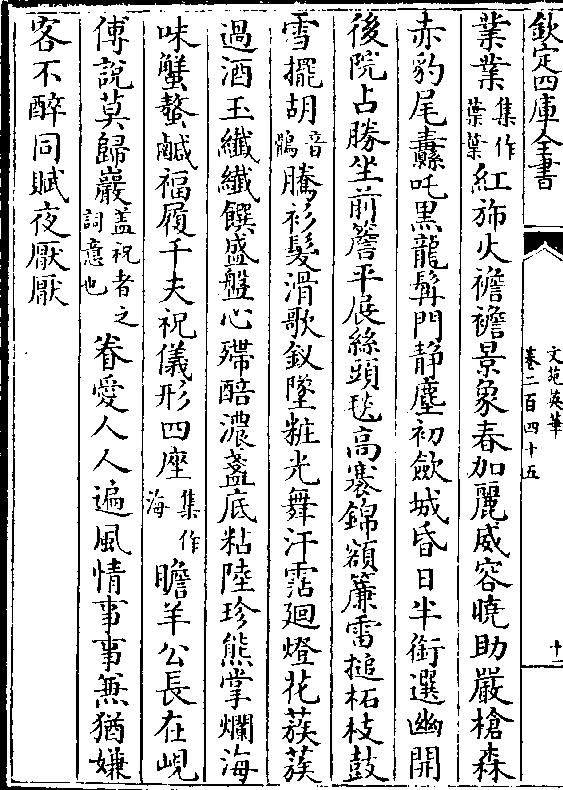 欽定四庫全書
文苑英華
卷二百四十五
十二
業業集作葉葉紅斾火襜襜景象春加麗威容曉助嚴槍森
赤豹尾纛吒黒龍髯門静塵初歛城昏日半銜選幽開
後院占勝坐前簷平展絲頭毯高褰錦額簾雷搥柘枝鼓
雪擺胡音鶻騰衫髮滑歌釵墜粧光舞汗霑廻燈花蔟蔟
過酒玉纖纖饌盛盤心殢醅濃盞底粘陸珍熊掌爛海
味蟹螯鹹福履千夫祝儀形四座集作海瞻羊公長在峴
傅說莫歸巖盖祝者之詞意也眷愛人人遍風情事事兼猶嫌
客不醉同賦夜厭厭